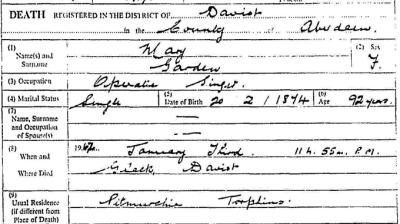 DEATH REGISTERED IN THE DISTRICT OF Daviot
in the County of Aberdeen
(1) Name(s) and Surname May Garden (2) Sex F.
(3) Occupation Operatic Singer
(4) Marital Status Single (5) Date of Birth 20 2 1874 (6) Age 92 years
(7) Name, Surname and Occupation of Spouse(s) —
(8) When and Where Died 1967 January Third 11 h. 55m. P.M.
Daviot
(9) Usual Residence (if different from Place of Death) Pitmurchie Torphins